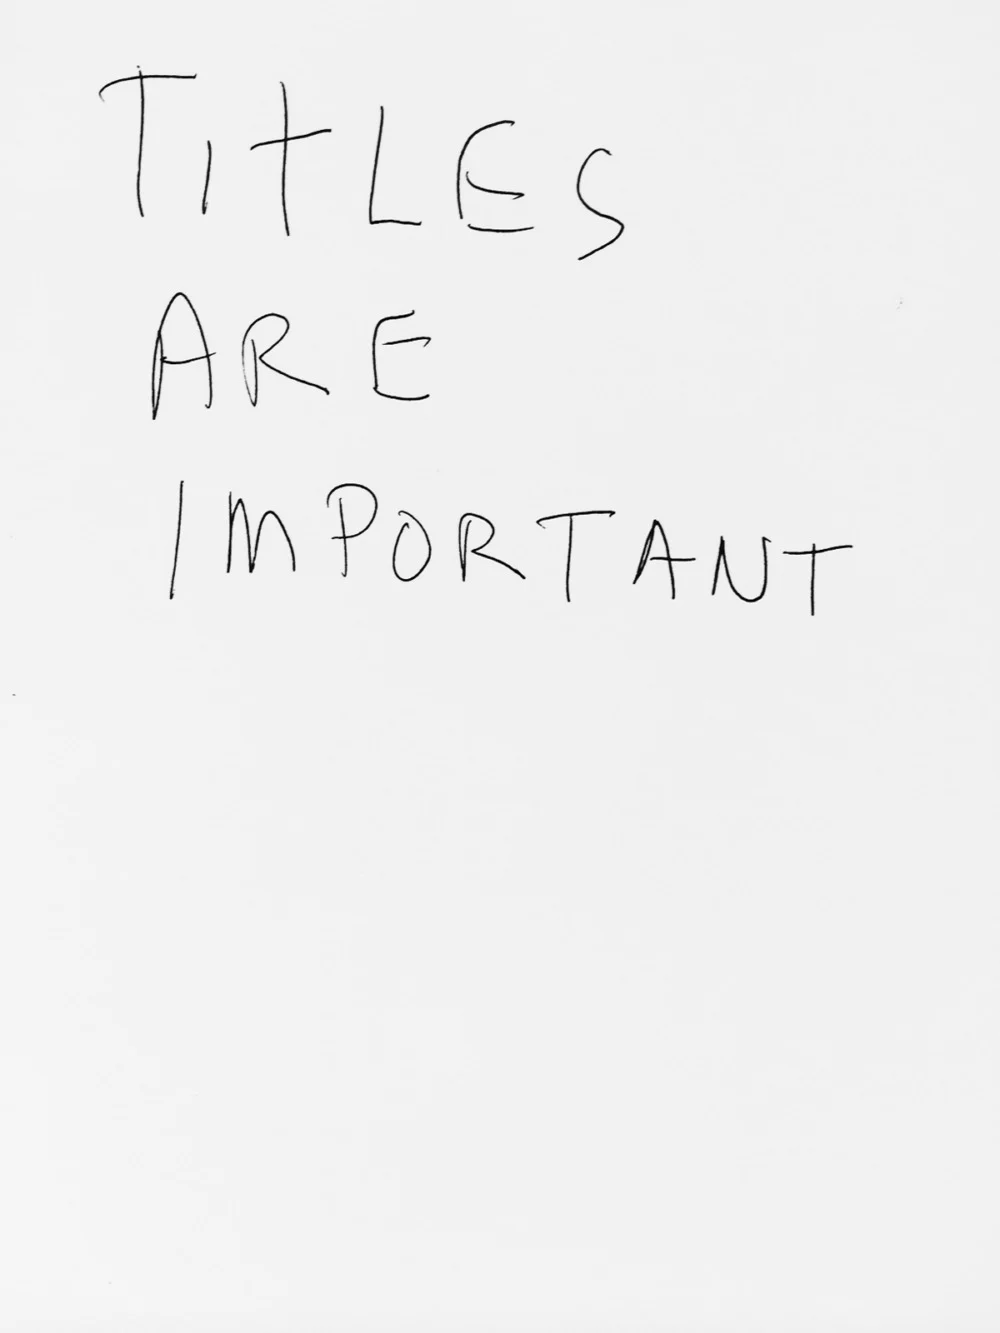 TITLES
ARE
IMPORTANT